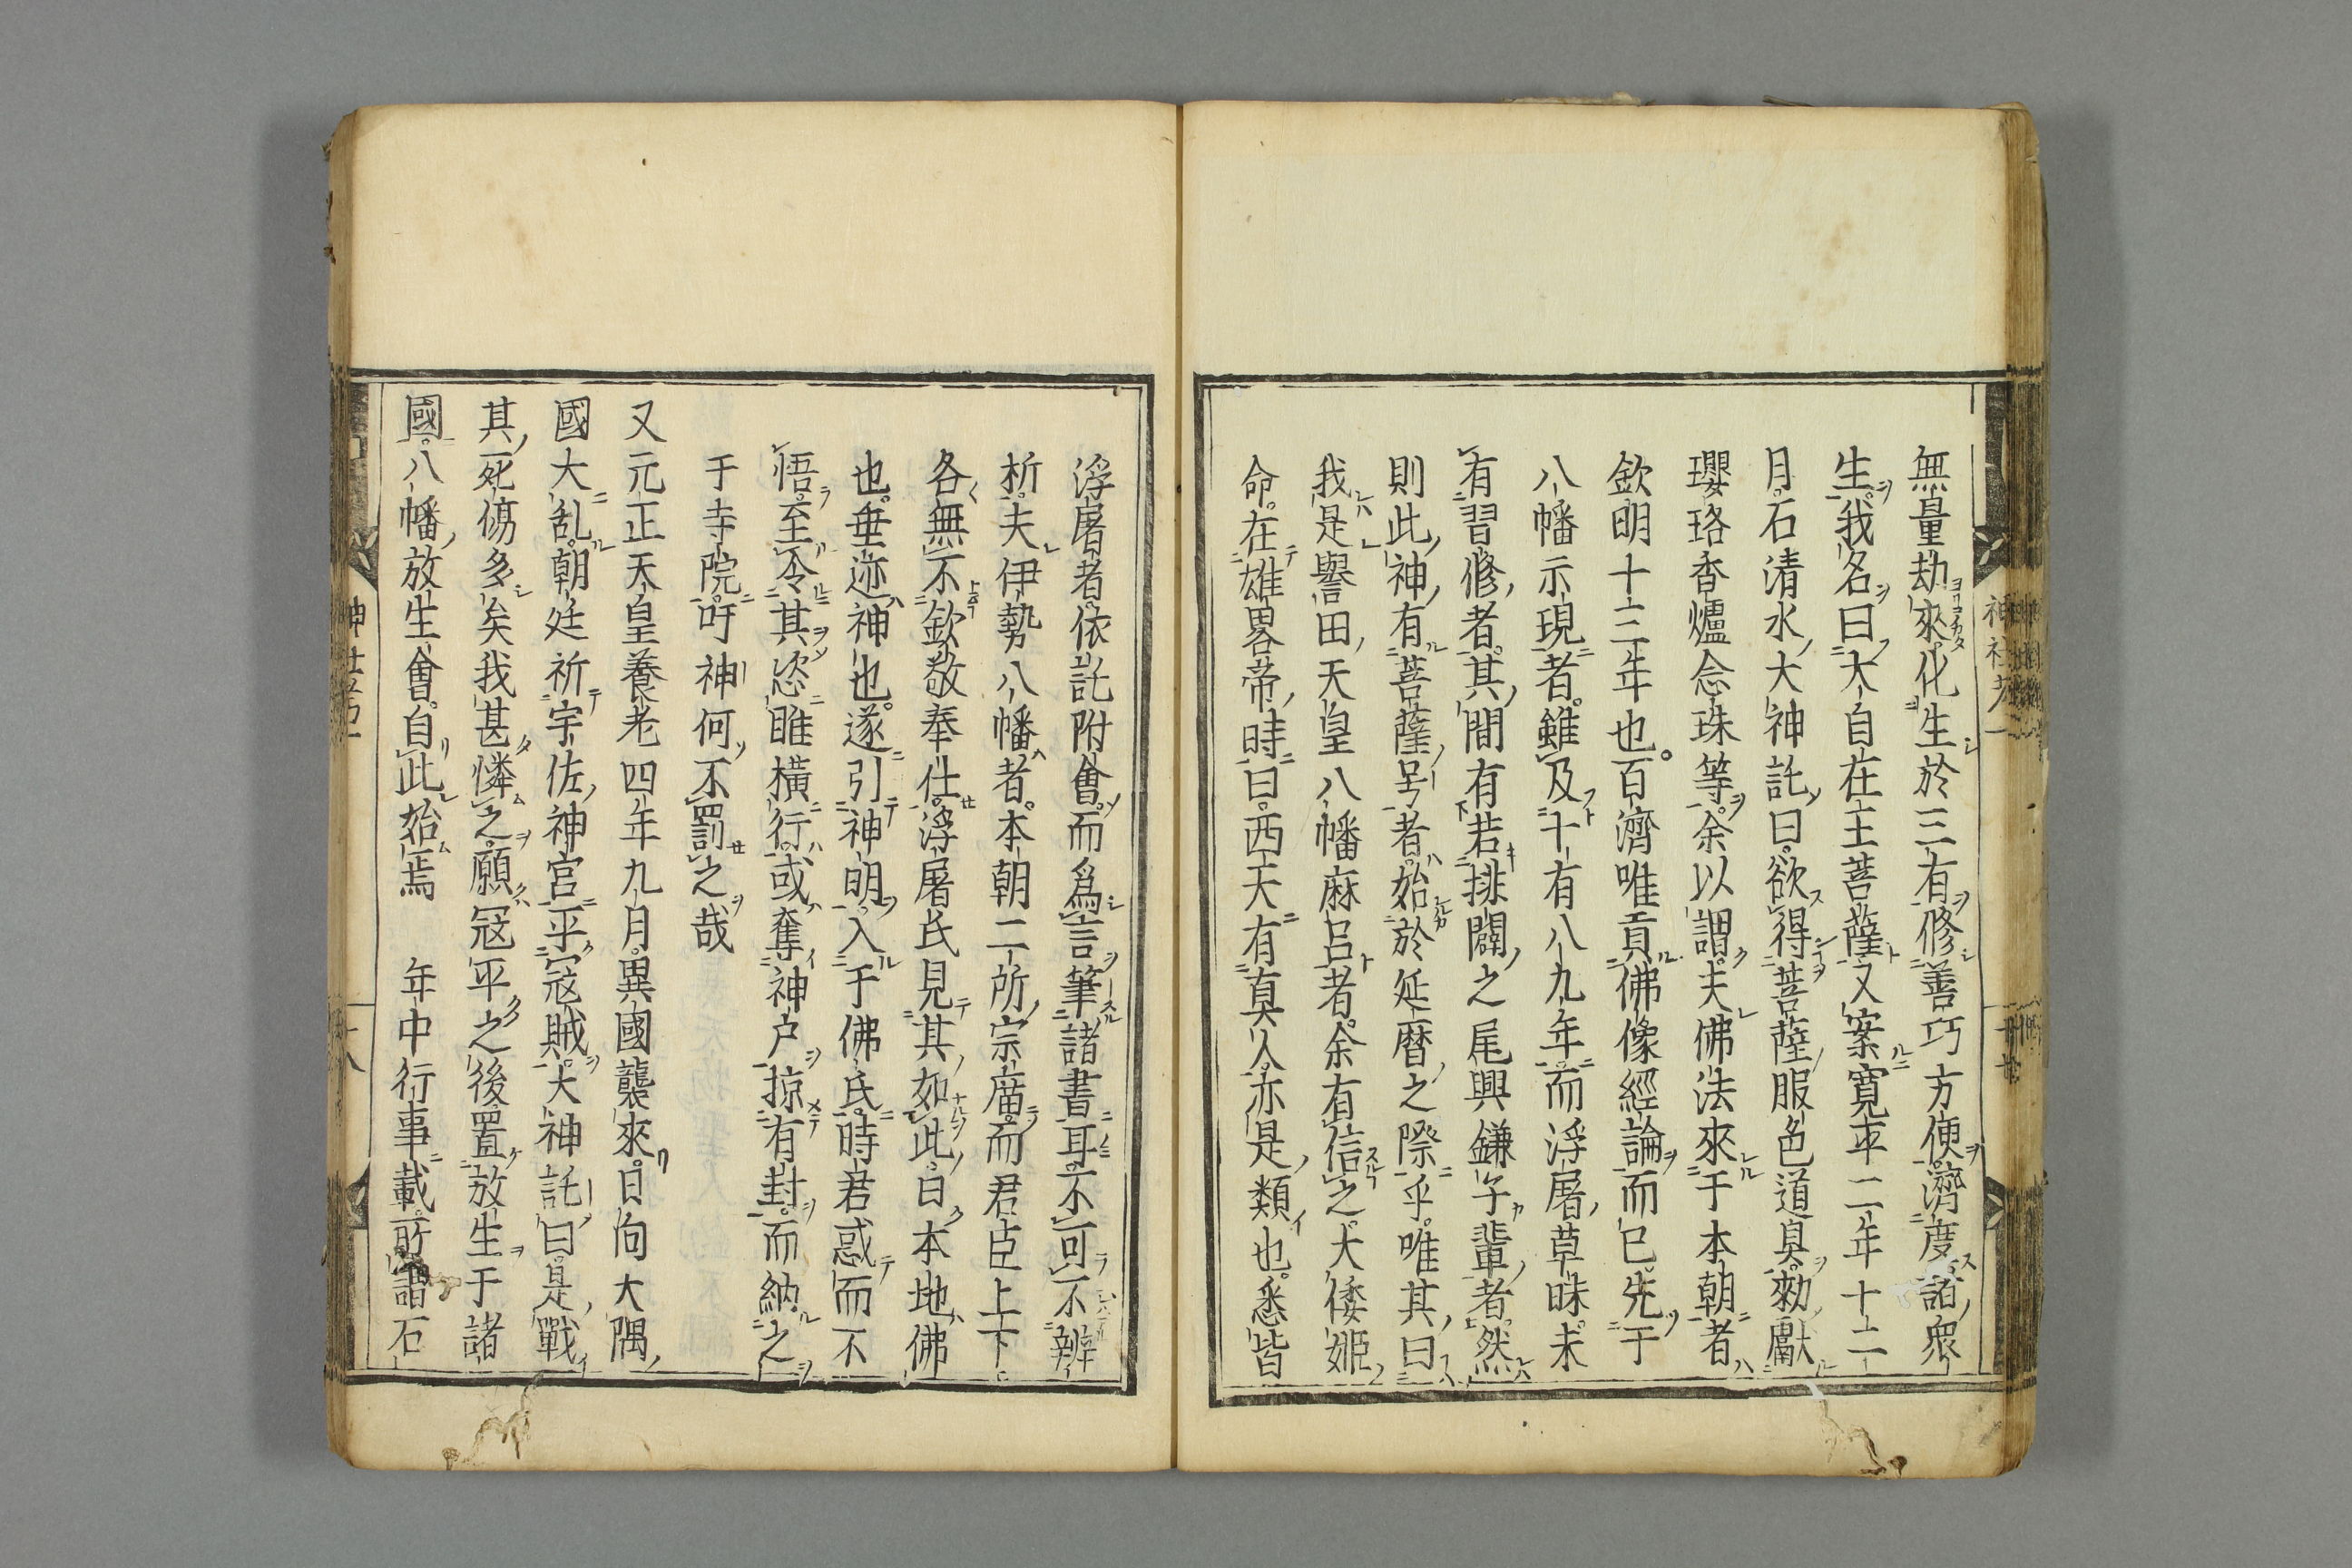 無量劫來化生於三有修善巧方便濟度諸衆
生我名曰大自在王菩薩又案寛平二年十二
月石清水大神託曰欲得菩薩服色道具勅獻
瓔珞香爐念珠等余以謂夫佛法來于本朝者
欽明十三年也百濟唯貢佛像經論而已先于
八幡示現者雖及十有八九年而浮屠草昧未
有習修者其間有若排闢之尾輿鎌子輩者然
則此神有菩薩号者始於延暦之際乎唯其曰
我是譽田天皇八幡麻呂者余有信之大倭姫
命在雄畧帝時曰西天有真人亦是類也悉皆
浮屠者依託附會而爲言筆諸書耳不可不辨
析夫伊勢八幡者本朝二所宗廣而君臣上下
各無不欽敬奉仕浮屠氏見其如此曰本地佛
也垂迹神也遂引神明入于佛氏時君惑而不
悟至令其恣睢橫行或奪神户掠有封而納之
于寺院吁神何不罰之哉
又元正天皇養老四年九月異國襲來日向大隅
國大乱朝廷祈宇佐神宮平寇賊大神託曰是戰
其死傷多矣我甚憐之願冦平之後置放生于諸
國八幡放生會自此始焉　年中行事載所謂石
神社考一
十八